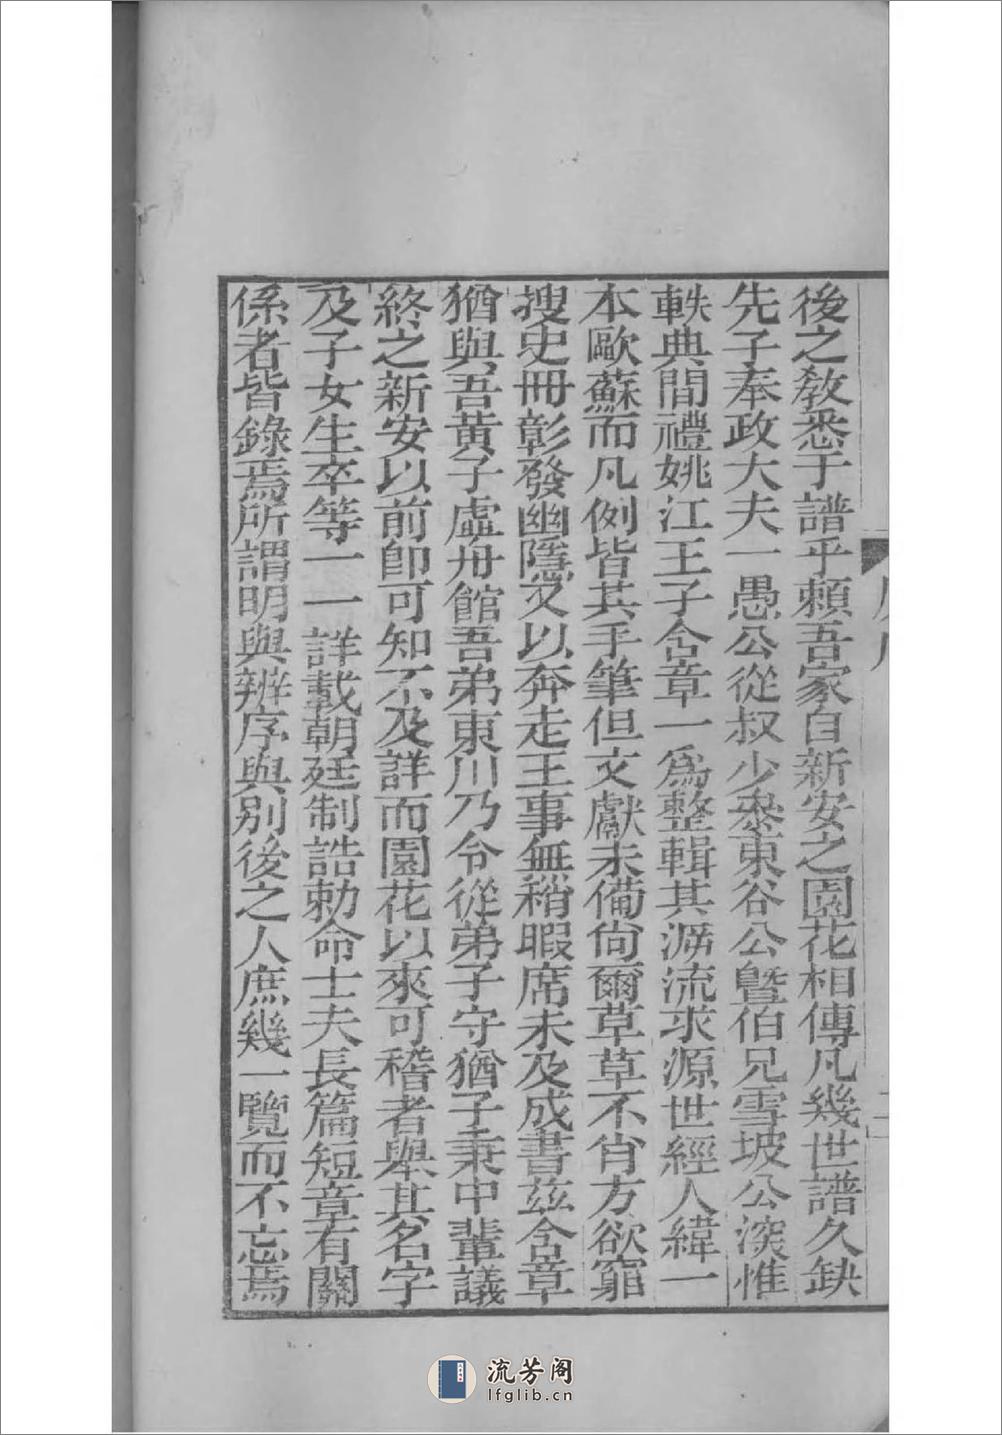 後之教悉于譜乎賴吾家自新安之園花相傳凡幾世譜久缺
先子奉政大夫一愚公從叔少泰東谷公暨伯兄雪坡公深惟
軼典間禮姚江王子含章一爲整輯其泝流求源世經人緯一
本歐蘇而凡例皆其手筆但文獻未備尙爾草草不肖方欲窮
搜史冊彰發幽隱又以奔走王事無稍暇席未及成書茲含章
猶與吾黃子虛舟館吾弟東川乃令從弟子守猶子秉中輩議
終之新安以前卽可知不及詳而園花以來可稽者舉其名字
及子女生卒等一一詳載朝廷制誥勅命士夫長篇短章有關
係者皆錄焉所謂明與辨序與別後之人庶幾一覽而不忘焉
流芳阁
lfglib.cn